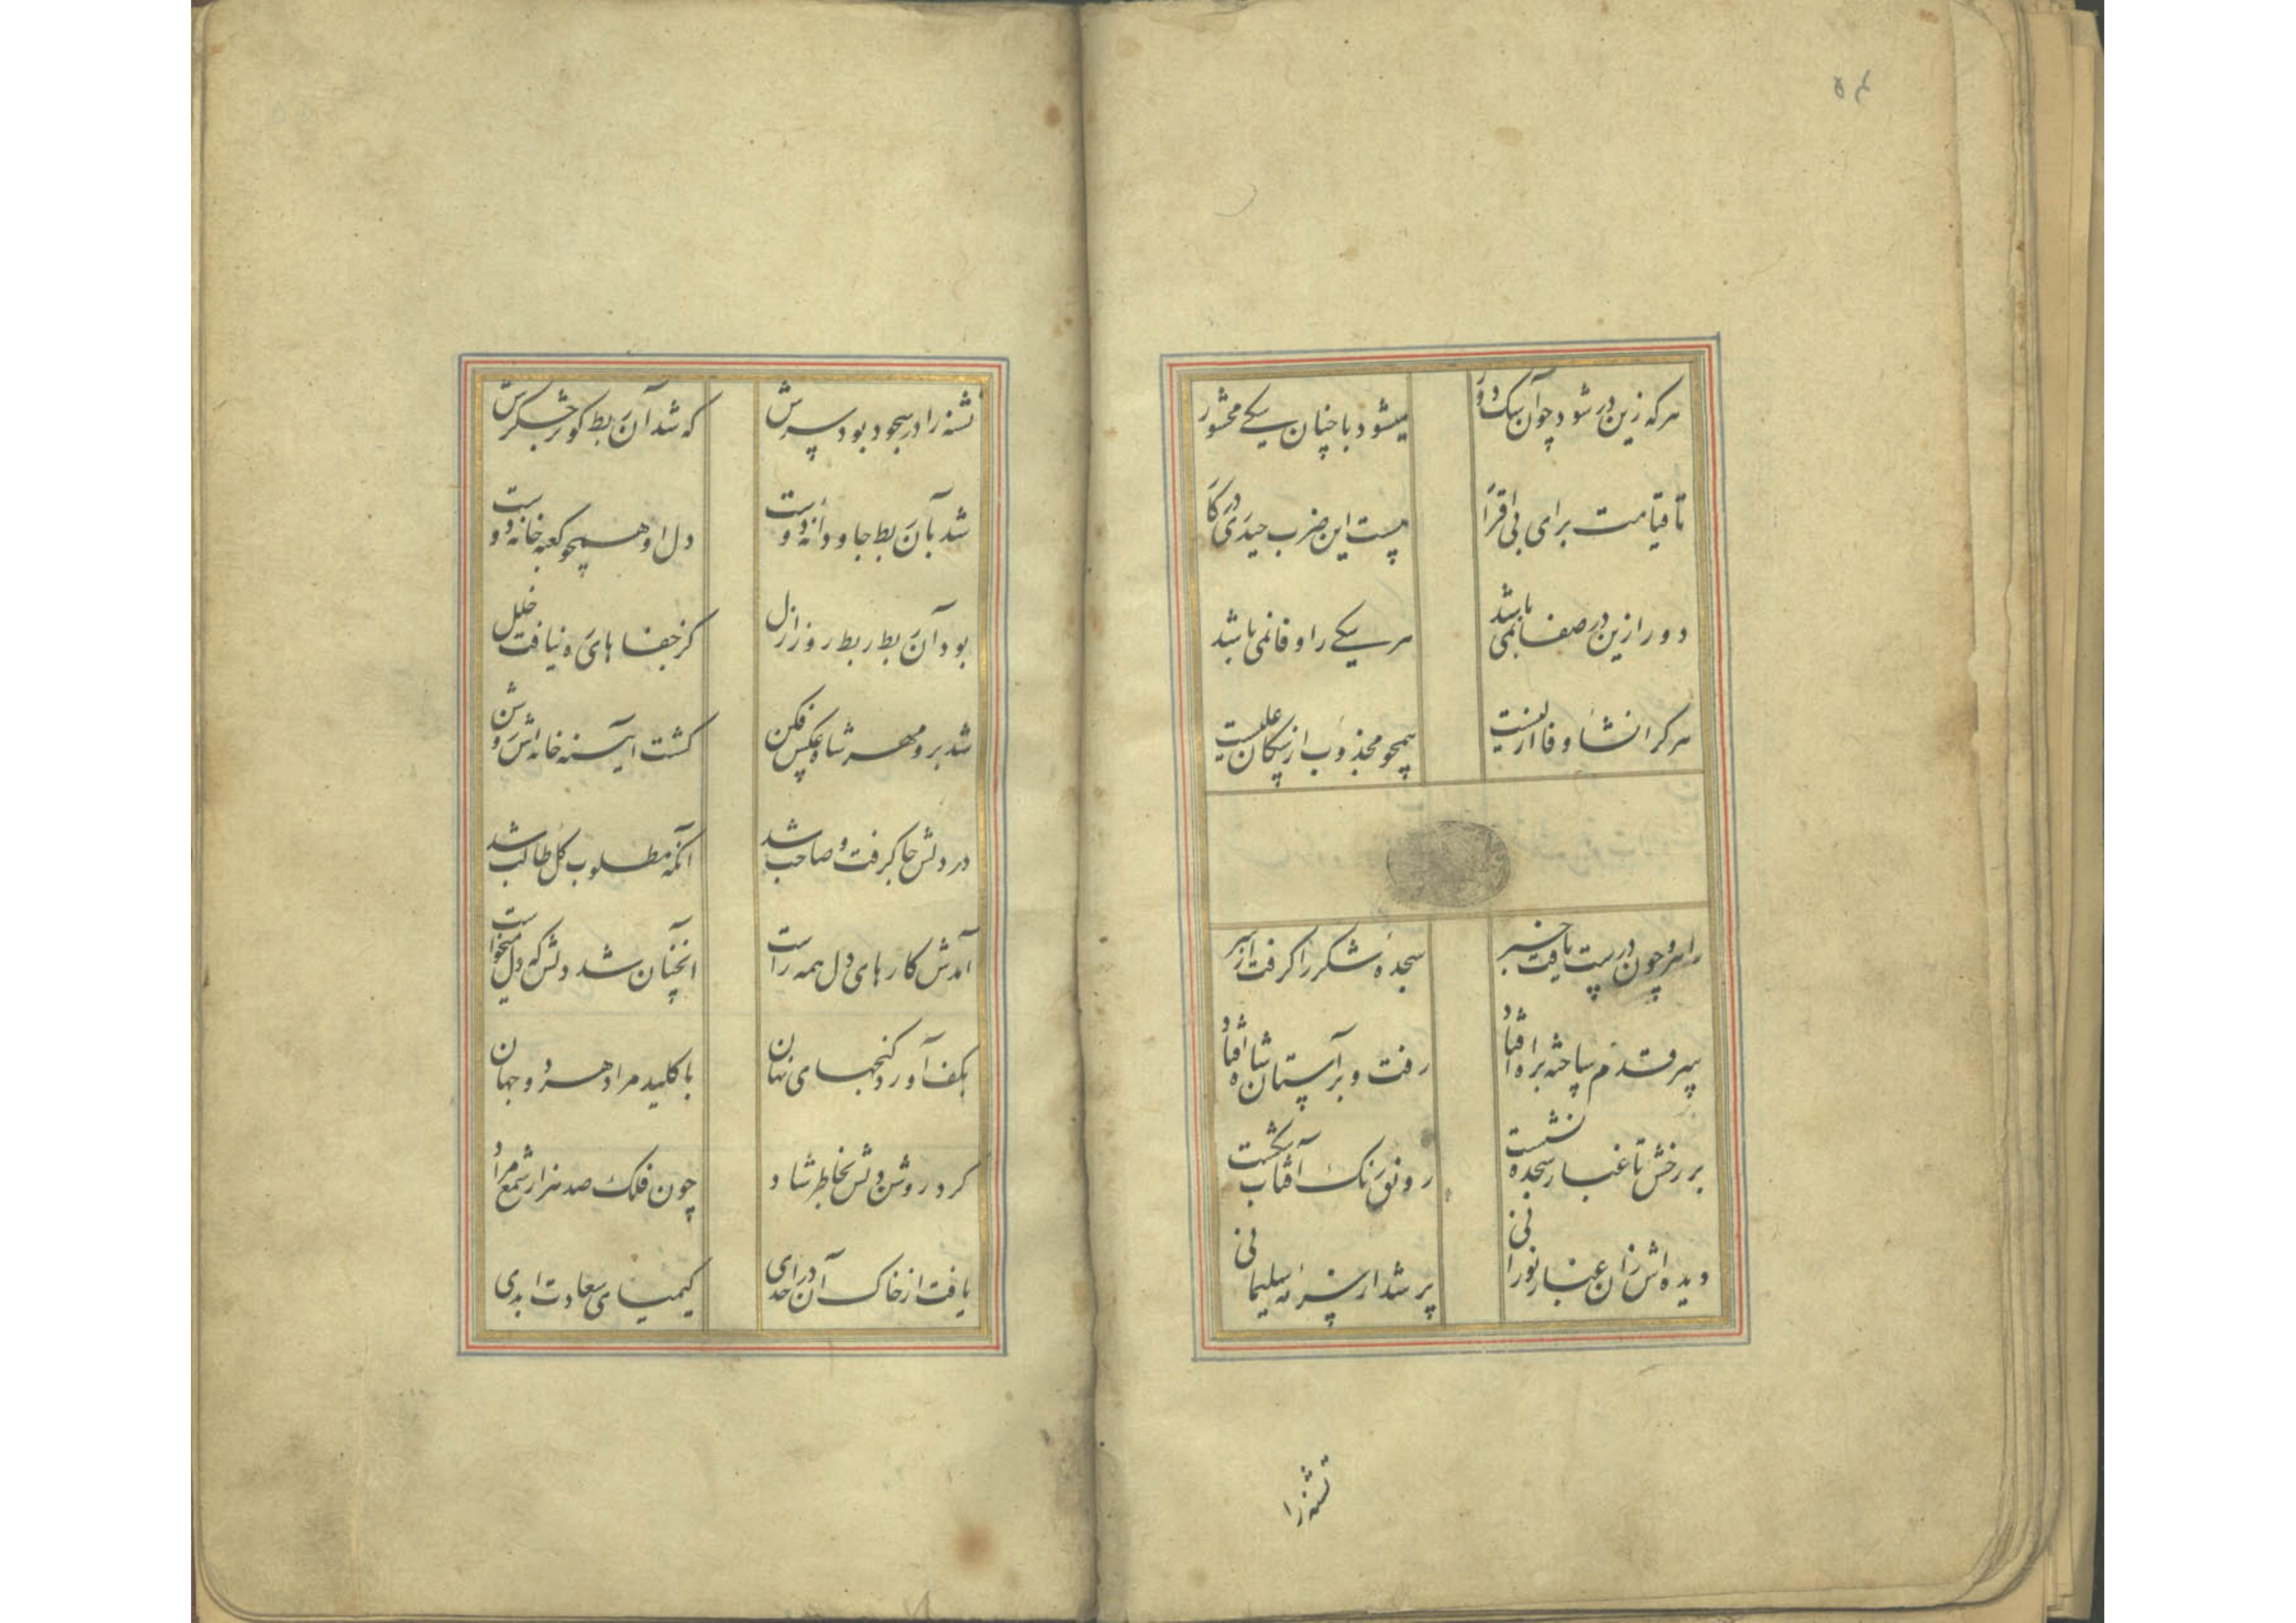 ۵۴
هر که زین در شود چون آن سگ دور
میشود با چنان سگی محشور
تا قیامت برای بی اقرار
پست این ضرب حیدری در کار
دور ازین در صفا نمی باشد
هر سگی را وفا نمی باشد
هر کرا نشأ وفا ازلیست
همچو مجذوب از سگان علیست
راهرو چون درست یافت خبر
سجده شکر را گرفت از سر
سر قدم ساخته براه افتاد
رفت و بر آستان شاه افتاد
بر رخش تا غبار سجده نشست
رونق رنگ آفتاب شکست
دیده اش زان غبار نورانی
پر شد از سرمه سلیمانی
تشنه را
تشنه را در سجود بود سرش
که شد آن بط کوثر جگرش
شد بآن بط جاودانه دوست
دل او همچو کعبه خانه دوست
بود آن بط ربط روز ازل
کز جفا های ره نیافت خلل
شد برو مهر شاه عکس فکن
گشت آیینه خانه اش روشن
در دلش جا گرفت و صاحب شد
آنکه مطلوب کل طالب شد
آمدش کار های دل همه راست
آنچنان شد دلش که دل میخواست
بکف آورد گنجهای نهان
با کلید مراد هر دو جهان
کرد روشن دلش بخاطر شاد
چون فلک صد هزار شمع مراد
یافت از خاک آن در احدی
کیمیای سعادت ابدی